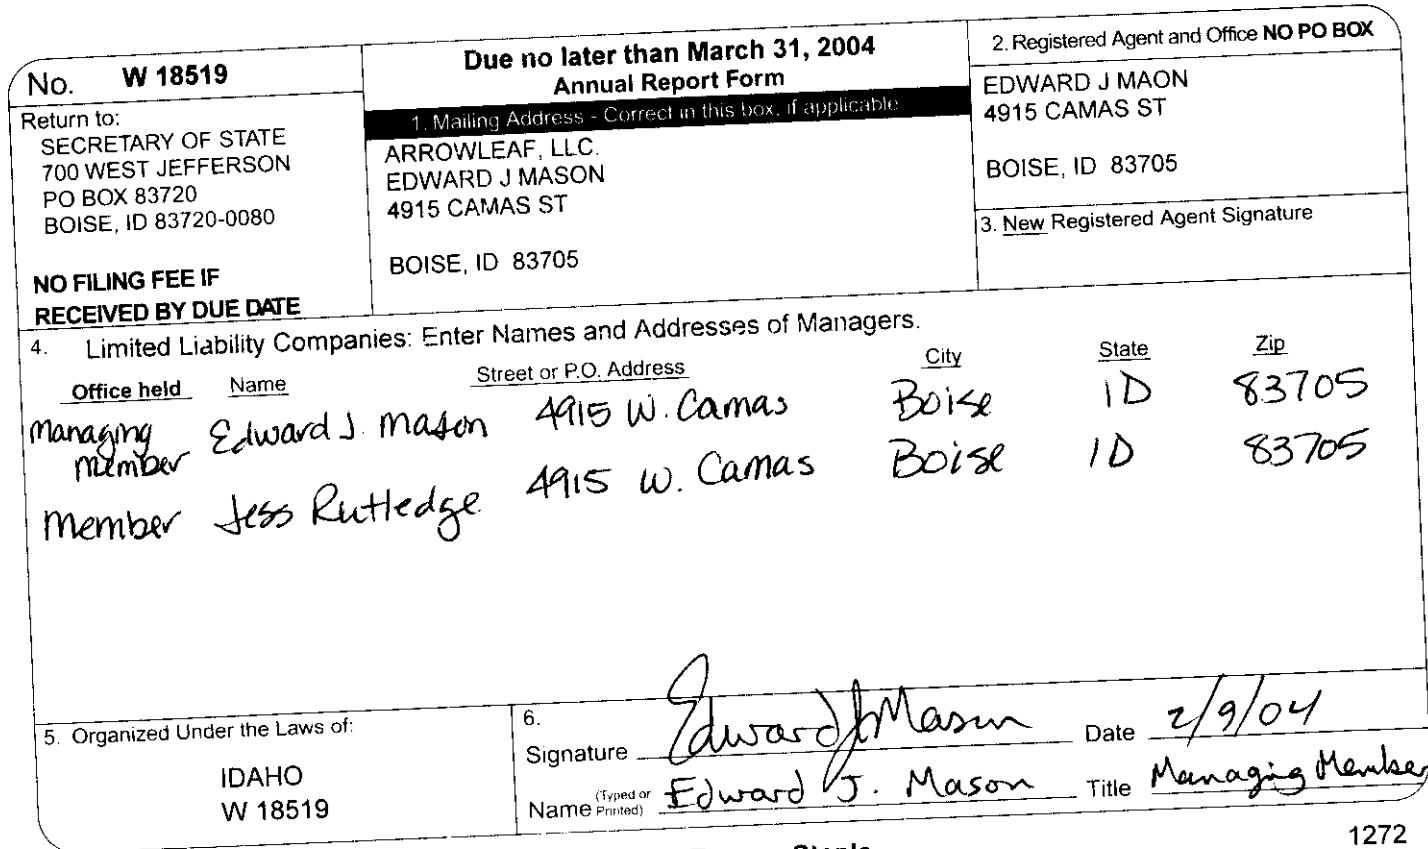 No. W 18519
Return to:
SECRETARY OF STATE
700 WEST JEFFERSON
PO BOX 83720
BOISE, ID 83720-0080
NO FILING FEE IF
RECEIVED BY DUE DATE
Due no later than March 31, 2004
Annual Report Form
1. Mailing Address - Correct in this box, if applicable
ARROWLEAF, LLC.
EDWARD J MASON
4915 CAMAS ST
BOISE, ID 83705
2. Registered Agent and Office NO PO BOX
EDWARD J MAON
4915 CAMAS ST
BOISE, ID 83705
3. New Registered Agent Signature
4. Limited Liability Companies: Enter Names and Addresses of Managers.
Office held Name Street or P.O. Address City State Zip
Managing Member Edward J. Mason 4915 W. Camas Boise ID 83705
Member Jess Rutledge 4915 W. Camas Boise ID 83705
5. Organized Under the Laws of:
IDAHO
W 18519
6.
Signature Edward J Mason Date 2/9/04
Name (Typed or Printed) Edward J. Mason Title Managing Member
1272